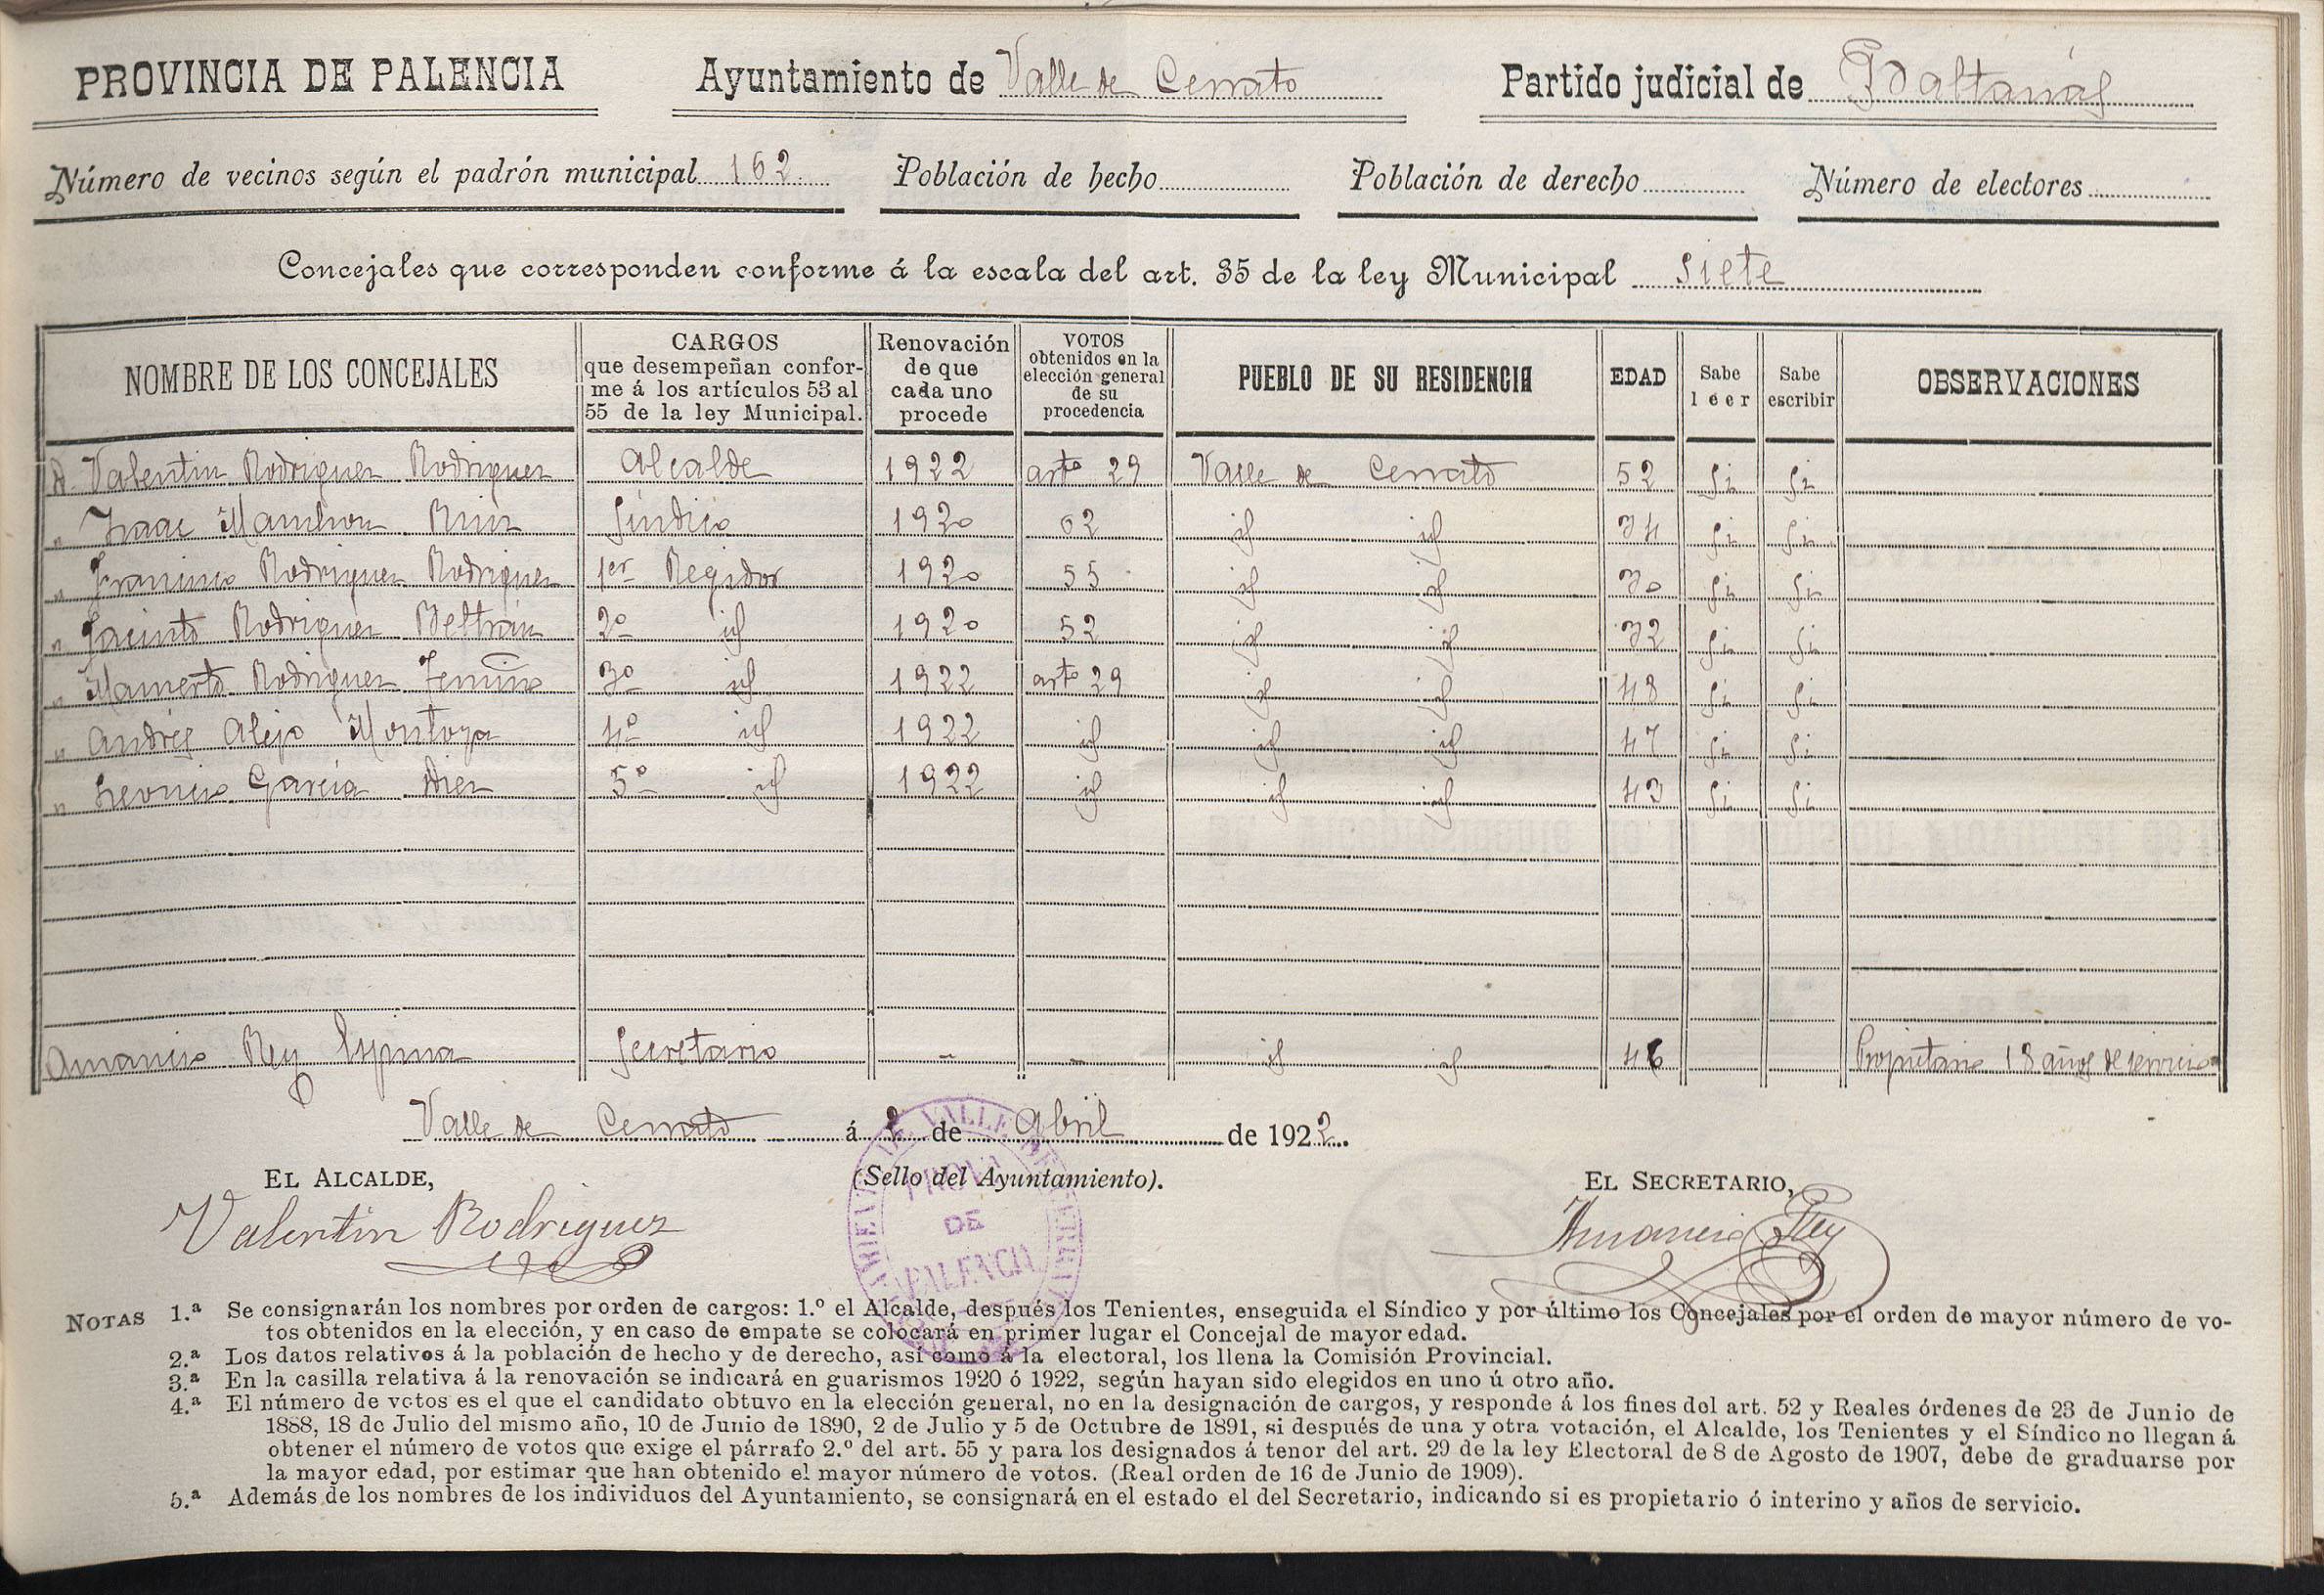 PROVINCIA DE PALENCIA Ayuntamiento de Valle de Cerrato Partido judicial de Baltanás
Número de vecinos según el padrón municipal 162 Población de hecho Población de derecho Número de electores
Concejales que corresponden conforme á la escala del art. 35 de la ley Municipal Siete
NOMBRE DE LOS CONCEJALES CARGOS que desempeñan conforme á los artículos 53 al 55 de la ley Municipal. Renovación de que cada uno procede VOTOS obtenidos en la elección general de su procedencia PUEBLO DE SU RESIDENCIA EDAD Sabe leer Sabe escribir OBSERVACIONES
D. Valentin Rodriguez Rodriguez Alcalde 1922 arto 29 Valle de Cerrato 52 Si Si
" Isaac Mambron Ruiz Sindico 1920 62 id id 34 Si Si
" Francisco Rodriguez Rodriguez 1er Regidor 1920 55 id id 30 Si Si
" Jacinto Rodriguez Beltrán 2º id 1920 52 id id 32 Si Si
" Mamerto Rodriguez Temiño 3º id 1922 arto 29 id id 48 Si Si
" Andrés Alejo Montoya 4º id 1922 id id id 47 Si Si
" Leoncio García Diez 5º id 1922 id id id 43 Si Si
Amancio Rey Espina Secretario - - id id 46 Propietario 18 años de servicio
Valle de Cerrato á 2 de Abril de 1922.
EL ALCALDE, (Sello del Ayuntamiento). EL SECRETARIO,
Valentin Rodriguez Amancio Rey
PROVA
DE
PALENCIA
NOTAS 1.ª Se consignarán los nombres por orden de cargos: 1.º el Alcalde, después los Tenientes, enseguida el Síndico y por último los Concejales por el orden de mayor número de vo-
tos obtenidos en la elección, y en caso de empate se colocará en primer lugar el Concejal de mayor edad.
2.ª Los datos relativos á la población de hecho y de derecho, así como á la electoral, los llena la Comisión Provincial.
3.ª En la casilla relativa á la renovación se indicará en guarismos 1920 ó 1922, según hayan sido elegidos en uno ú otro año.
4.ª El número de votos es el que el candidato obtuvo en la elección general, no en la designación de cargos, y responde á los fines del art. 52 y Reales órdenes de 23 de Junio de
1888, 18 de Julio del mismo año, 10 de Junio de 1890, 2 de Julio y 5 de Octubre de 1891, si después de una y otra votación, el Alcalde, los Tenientes y el Síndico no llegan á
obtener el número de votos que exige el párrafo 2.º del art. 55 y para los designados á tenor del art. 29 de la ley Electoral de 8 de Agosto de 1907, debe de graduarse por
la mayor edad, por estimar que han obtenido el mayor número de votos. (Real orden de 16 de Junio de 1909).
5.ª Además de los nombres de los individuos del Ayuntamiento, se consignará en el estado el del Secretario, indicando si es propietario ó interino y años de servicio.